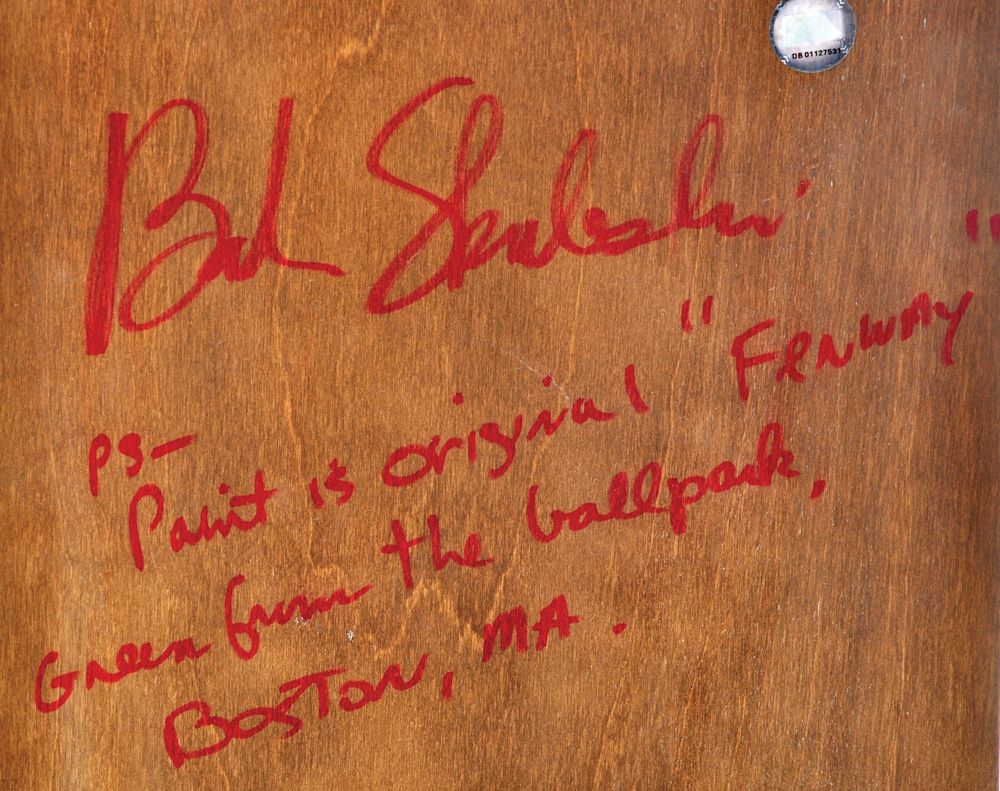 DB 01127531
PS-
Paint is original "Fenway"
Green from the ballpark,
Boston, MA.